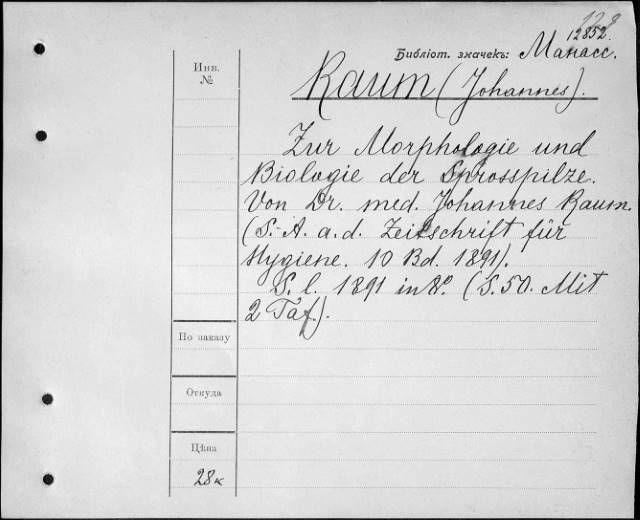 12852.
Библіот. значекъ: Манасс.
Инв.
№
Raum (Johannes).
Zur Morphologie und
Biologie der Sprosspilze.
Von Dr. med. Johannes Raum.
(S.-A. a. d. Zeitschrift für
Hygiene. 10 Bd. 1891).
S. l. 1891 in 8º. (S. 50. Mit
2 Taf.).
По заказу
Откуда
Цѣна
28к